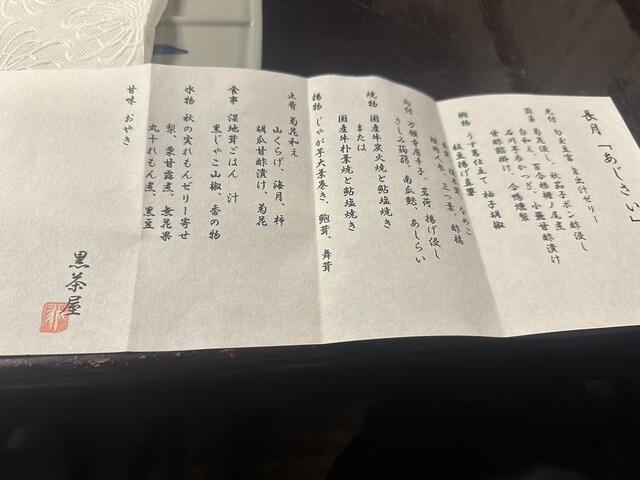 長月「あじさい」
先付 旨出汁ゼリー
前菜 菊花浸し、秋茄子ポン酢浸し
白和え、百合根
石川芋衣かつぎ、小蕪甘酢漬け
甘酢餡掛け、合鴨燻製
椀物 うす葛仕立て 柚子胡椒
三つ葉、酢橘
向付 万願寺唐辛子、茗荷 揚げ浸し
さしみ蒟蒻、南瓜麩、あしらい
焼物 国産牛炭火焼きと鮎塩焼き
または
国産牛朴葉焼と鮎塩焼き
揚物 じゃが芋大葉巻き、鮑茸、舞茸
止肴 菊花和え
山くらげ、海月、柿
胡瓜甘酢漬け、菊花
食事 湿地茸ごはん 汁
黒じゃこ山椒、香の物
水物 秋の実れもんゼリー寄せ
梨、栗甘露煮、無花果
丸十れもん煮、黒豆
甘味 おやき
黒茶屋